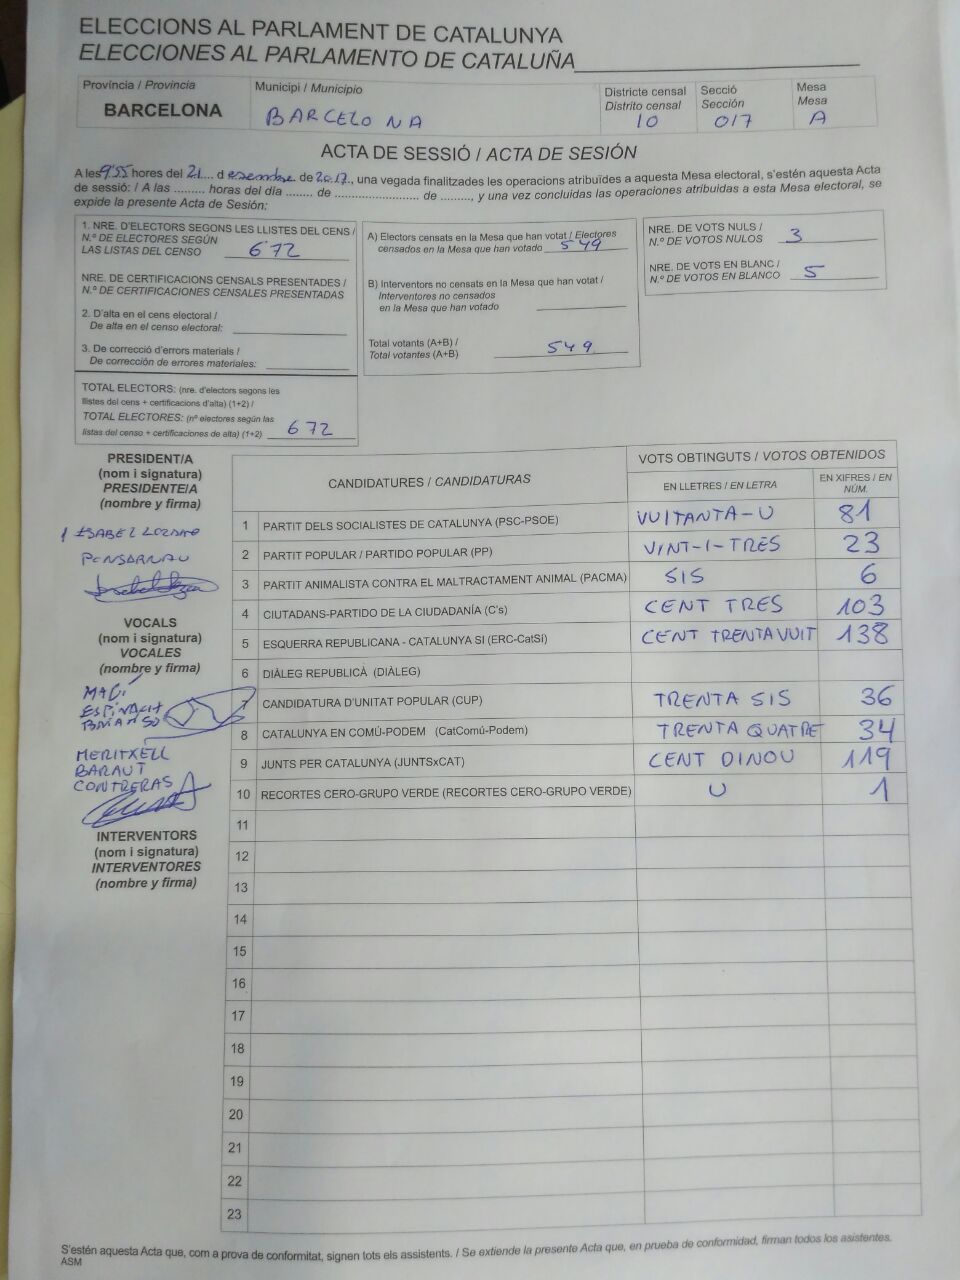 ELECCIONS AL PARLAMENT DE CATALUNYA
ELECCIONES AL PARLAMENTO DE CATALUÑA
Província / Provincia
BARCELONA
Municipi / Municipio
BARCELONA
Districte censal
Distrito censal
10
Secció
Sección
017
Mesa
Mesa
A
ACTA DE SESSIÓ / ACTA DE SESIÓN
A les 9'55 hores del 21 .... d esembre de 2017.., una vegada finalitzades les operacions atribuïdes a aquesta Mesa electoral, s'estén aquesta Acta
de sessió: / A las ......... horas del día ........ de ......................... de ........., y una vez concluidas las operaciones atribuidas a esta Mesa electoral, se
expide la presente Acta de Sesión:
1. NRE. D'ELECTORS SEGONS LES LLISTES DEL CENS /
N.º DE ELECTORES SEGÚN
LAS LISTAS DEL CENSO 672
NRE. DE CERTIFICACIONS CENSALS PRESENTADES /
N.º DE CERTIFICACIONES CENSALES PRESENTADAS
2. D'alta en el cens electoral /
De alta en el censo electoral:
3. De correcció d'errors materials /
De corrección de errores materiales:
TOTAL ELECTORS: (nre. d'electors segons les
llistes del cens + certificacions d'alta) (1+2) /
TOTAL ELECTORES: (nº electores según las
listas del censo + certificaciones de alta) (1+2) 672
A) Electors censats en la Mesa que han votat / Electores
censados en la Mesa que han votado 549
B) Interventors no censats en la Mesa que han votat /
Interventores no censados
en la Mesa que han votado
Total votants (A+B) /
Total votantes (A+B) 549
NRE. DE VOTS NULS /
N.º DE VOTOS NULOS 3
NRE. DE VOTS EN BLANC /
N.º DE VOTOS EN BLANCO 5
PRESIDENT/A
(nom i signatura)
PRESIDENTE/A
(nombre y firma)
ISABEL LOZANO
PONSARNAU
VOCALS
(nom i signatura)
VOCALES
(nombre y firma)
MAGÍ
ESPINACH
MERITXELL
BARAUT
CONTRERAS
INTERVENTORS
(nom i signatura)
INTERVENTORES
(nombre y firma)
CANDIDATURES / CANDIDATURAS
VOTS OBTINGUTS / VOTOS OBTENIDOS
EN LLETRES / EN LETRA
EN XIFRES / EN
NÚM.
1 PARTIT DELS SOCIALISTES DE CATALUNYA (PSC-PSOE) VUITANTA-U 81
2 PARTIT POPULAR / PARTIDO POPULAR (PP) VINT-I-TRES 23
3 PARTIT ANIMALISTA CONTRA EL MALTRACTAMENT ANIMAL (PACMA) SIS 6
4 CIUTADANS-PARTIDO DE LA CIUDADANÍA (C's) CENT TRES 103
5 ESQUERRA REPUBLICANA - CATALUNYA SÍ (ERC-CatSí) CENT TRENTA VUIT 138
6 DIÀLEG REPUBLICÀ (DIÀLEG)
7 CANDIDATURA D'UNITAT POPULAR (CUP) TRENTA SIS 36
8 CATALUNYA EN COMÚ-PODEM (CatComú-Podem) TRENTA QUATRE 34
9 JUNTS PER CATALUNYA (JUNTSxCAT) CENT DINOU 119
10 RECORTES CERO-GRUPO VERDE (RECORTES CERO-GRUPO VERDE) U 1
11
12
13
14
15
16
17
18
19
20
21
22
23
S'estén aquesta Acta que, com a prova de conformitat, signen tots els assistents. / Se extiende la presente Acta que, en prueba de conformidad, firman todos los asistentes.
ASM